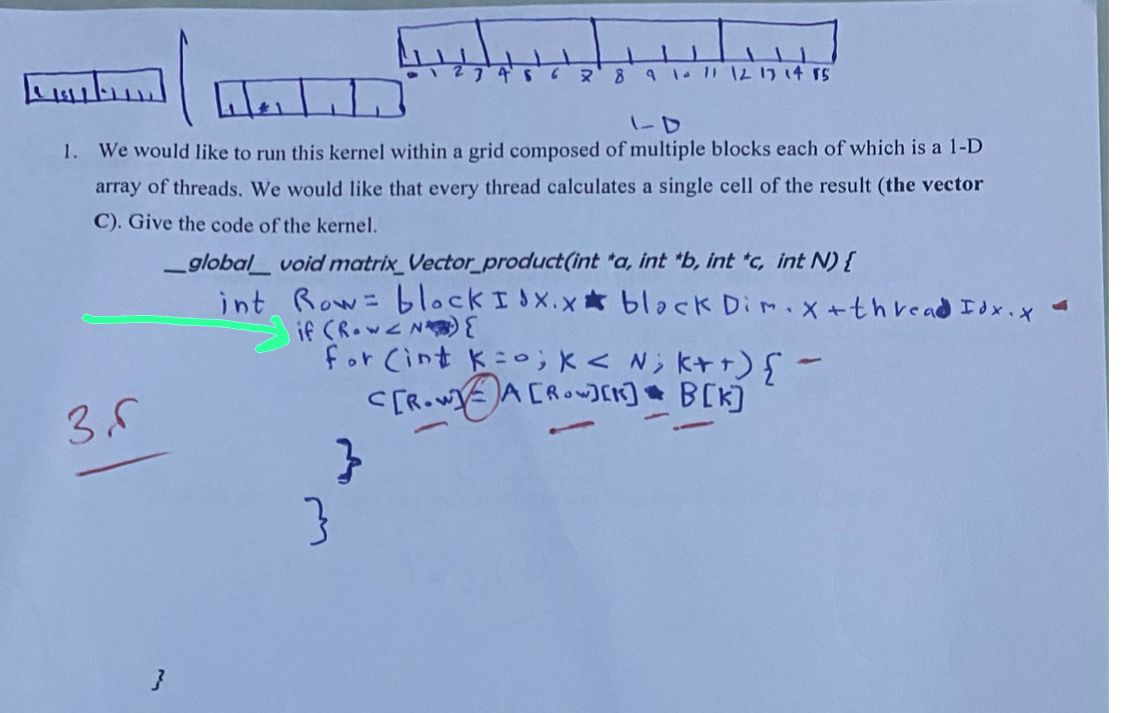 0 1 2 3 4 5 6 7 8 9 10 11 12 13 14 15
1-D
1. We would like to run this kernel within a grid composed of multiple blocks each of which is a 1-D
array of threads. We would like that every thread calculates a single cell of the result (the vector
C). Give the code of the kernel.
__global__ void matrix_Vector_product(int *a, int *b, int *c, int N) {
int Row = blockIdx.x * blockDim.x + threadIdx.x
if (Row < N) {
for (int K=0; K < N; K++) {
C[Row] = A[Row][K] * B[K]
3.5
}
}
}